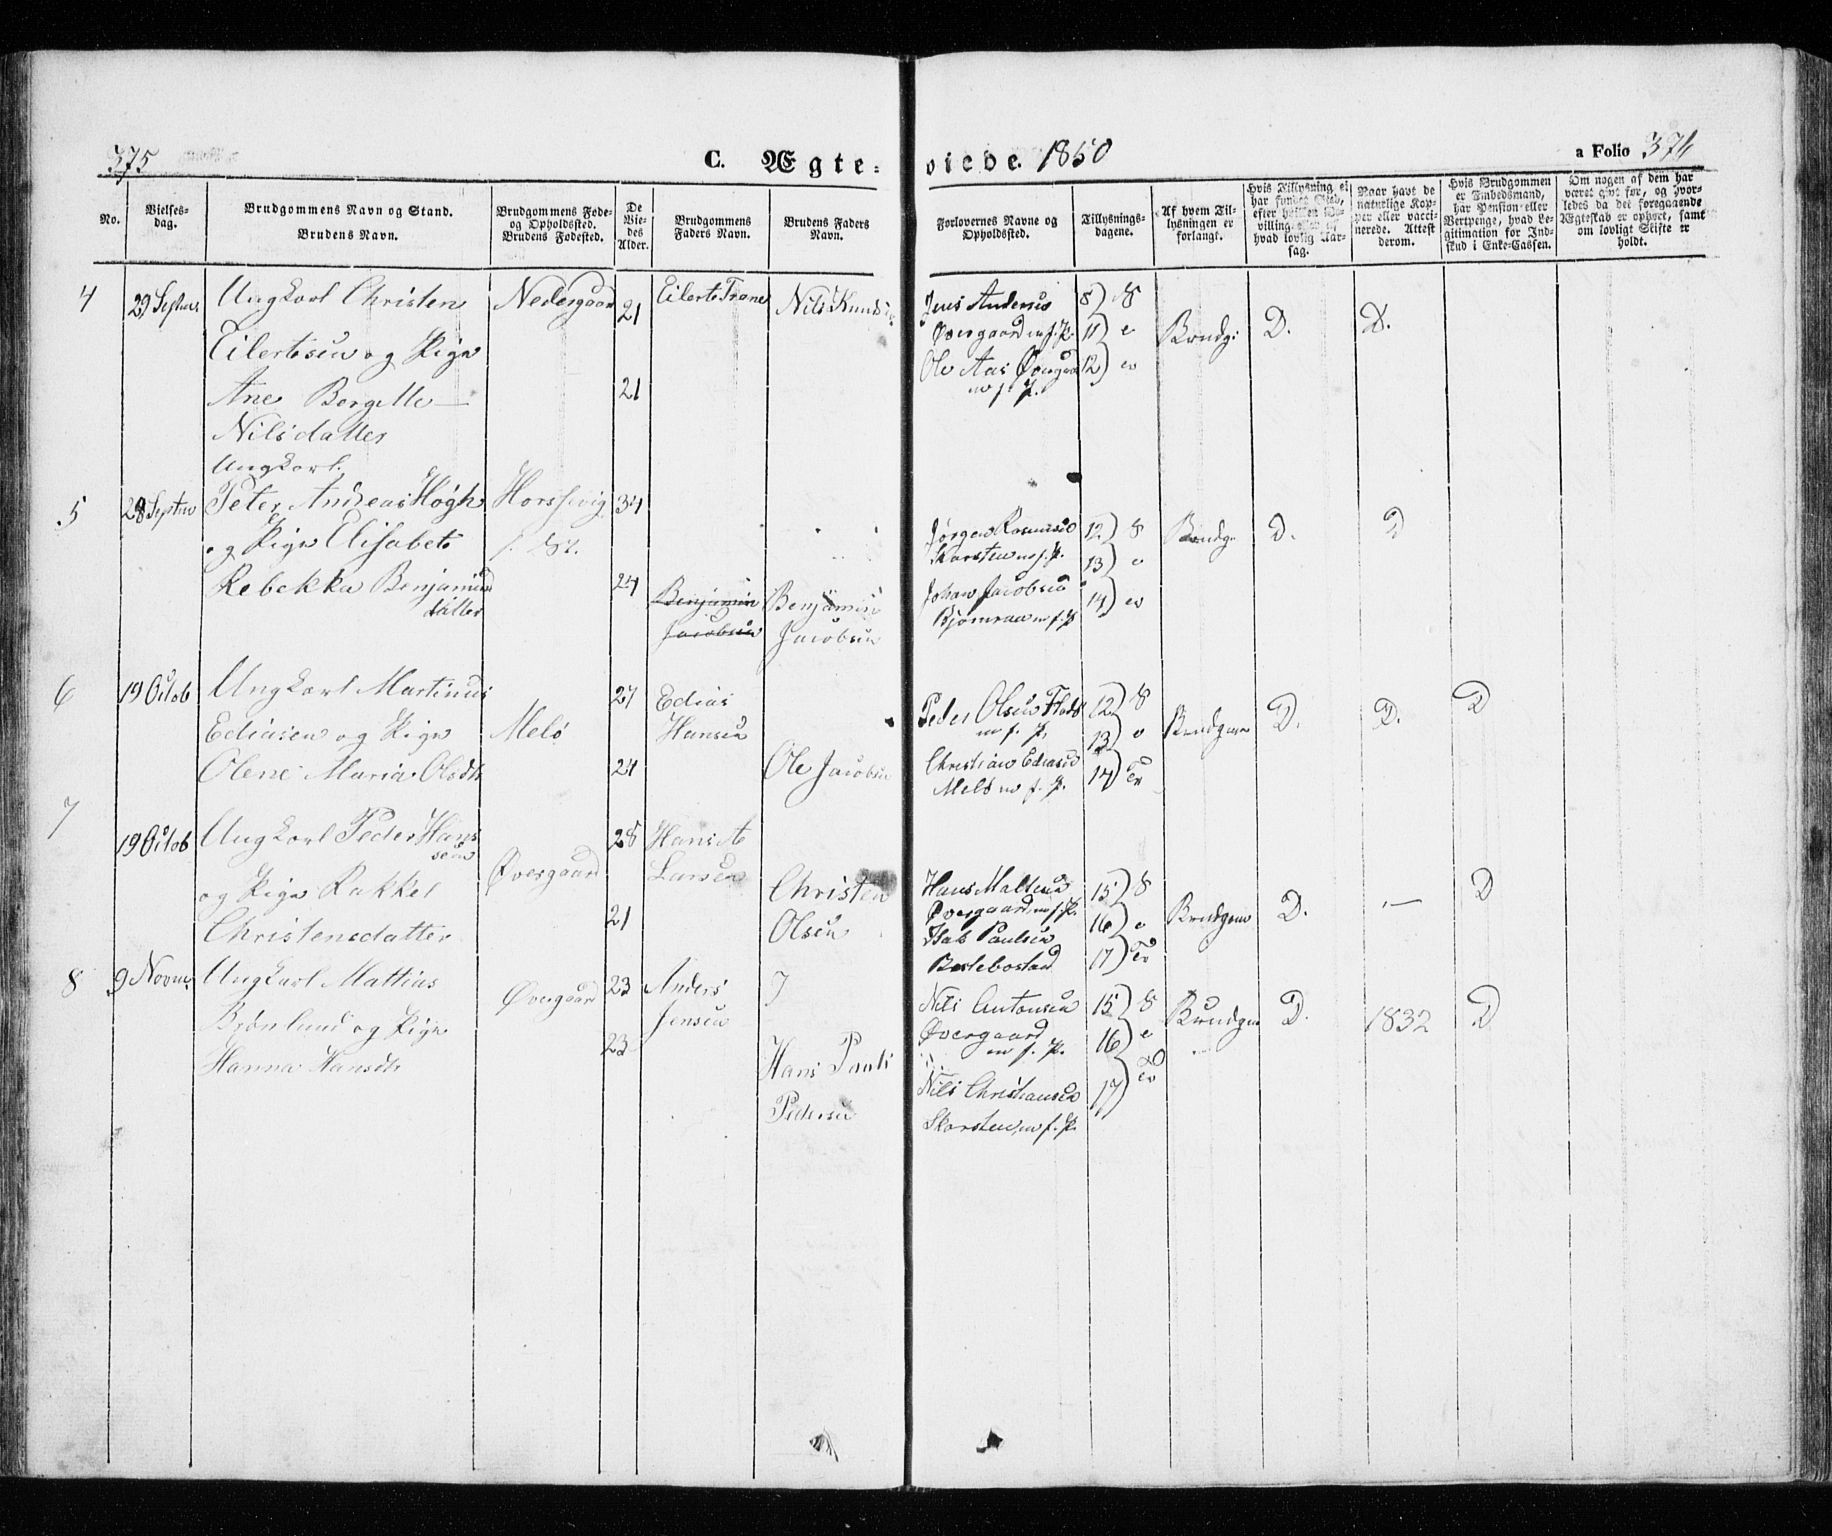 375
C. Ægte-viede. 1850
a Folio 376
No.
Vielses-
dag.
Brudgommens Navn og Stand.
Brudens Navn.
Brudgommens Føde-
og Opholdsted.
Brudens Fødested.
De
Vie-
des
Alder.
Brudgommens
Faders Navn.
Brudens Faders
Navn.
Forlovernes Navne og
Opholdsted.
Tillysnings-
dagene.
Af hvem Til-
lysningen er
forlangt.
Hvis Tillysning ei
har fundet Sted,
efter hvilken Be-
villing eller af
hvad lovlig Aar-
sag.
Naar havt de
naturlige Kop-
per eller vacci-
nerede. Attest
derom.
Hvis Brudgommen
er Indrodsmand,
har Pension eller
Vertpenge, hvad Le-
gitimation for Ind-
skud i Enke-Cassen.
Om nogen af dem har
været givt før, og hvor-
ledes da det foregaaende
Ægteskab er ophørt, samt
om lovligt Skifte er
holdt.
4
29 Septmr
Ungkarl Christen
Eilertsen og Pige
Ane Bergitte
Nilsdatter
Nedergaard
21
21
Eilert Trane
Nils Knuds
Jens Anders
Øvergaard m f. P.
Ole Aas Øvergaard
m f. P.
8)
11) e
12) er
Brudg:
D.
D.
5
28 Septmr
Ungkarl
Peter Andreas Høgh
og Pige Elisabet
Rebekka Benjamins
datter
Horssevig
34
24
Benjamin
Jacobsen
Benjamin
Jacobsen
Jørgen Rasmuss
Skarsten m f. P.
Johan Jacobsen
Bjørnraa m f. P.
12)
13) e
14) er
Brudg
D.
D
6
19 Octob
Ungkarl Martinus
Ediasen og Pige
Olene Maria Olsdtr
Melø
27
24
Edias
Hansen
Ole Jacobsen
Peder Olsen Flads
m f. P.
Christian Ediasen
Melø m f. P.
12)
13) e
14) er
Brudgom
D.
D.
D
7
19 Octob
Ungkarl Peder Hans
sen
og Pige Rakkel
Christensdatter
Øvergaard
28
21
Hans A
Larsen
Christen
Olsen
Hans Matsen
Øvergaard m f. P.
Isak Paulsen
Beslebostad
15)
16) e
17) er
Brudgom
D.
—
D
8
9 Novmr
Ungkarl Mattias
Brønlund og Pige
Hanna Hansdtr
Øvergaard
23
23
Anders
Jensen
Hans Pauls
Pedersen
Nils Antonsen
Øvergaard
m f. P.
Nils Christiansen
Skarsten m f. P.
15)
16) e
17) er
Brudgom
D.
1832
D